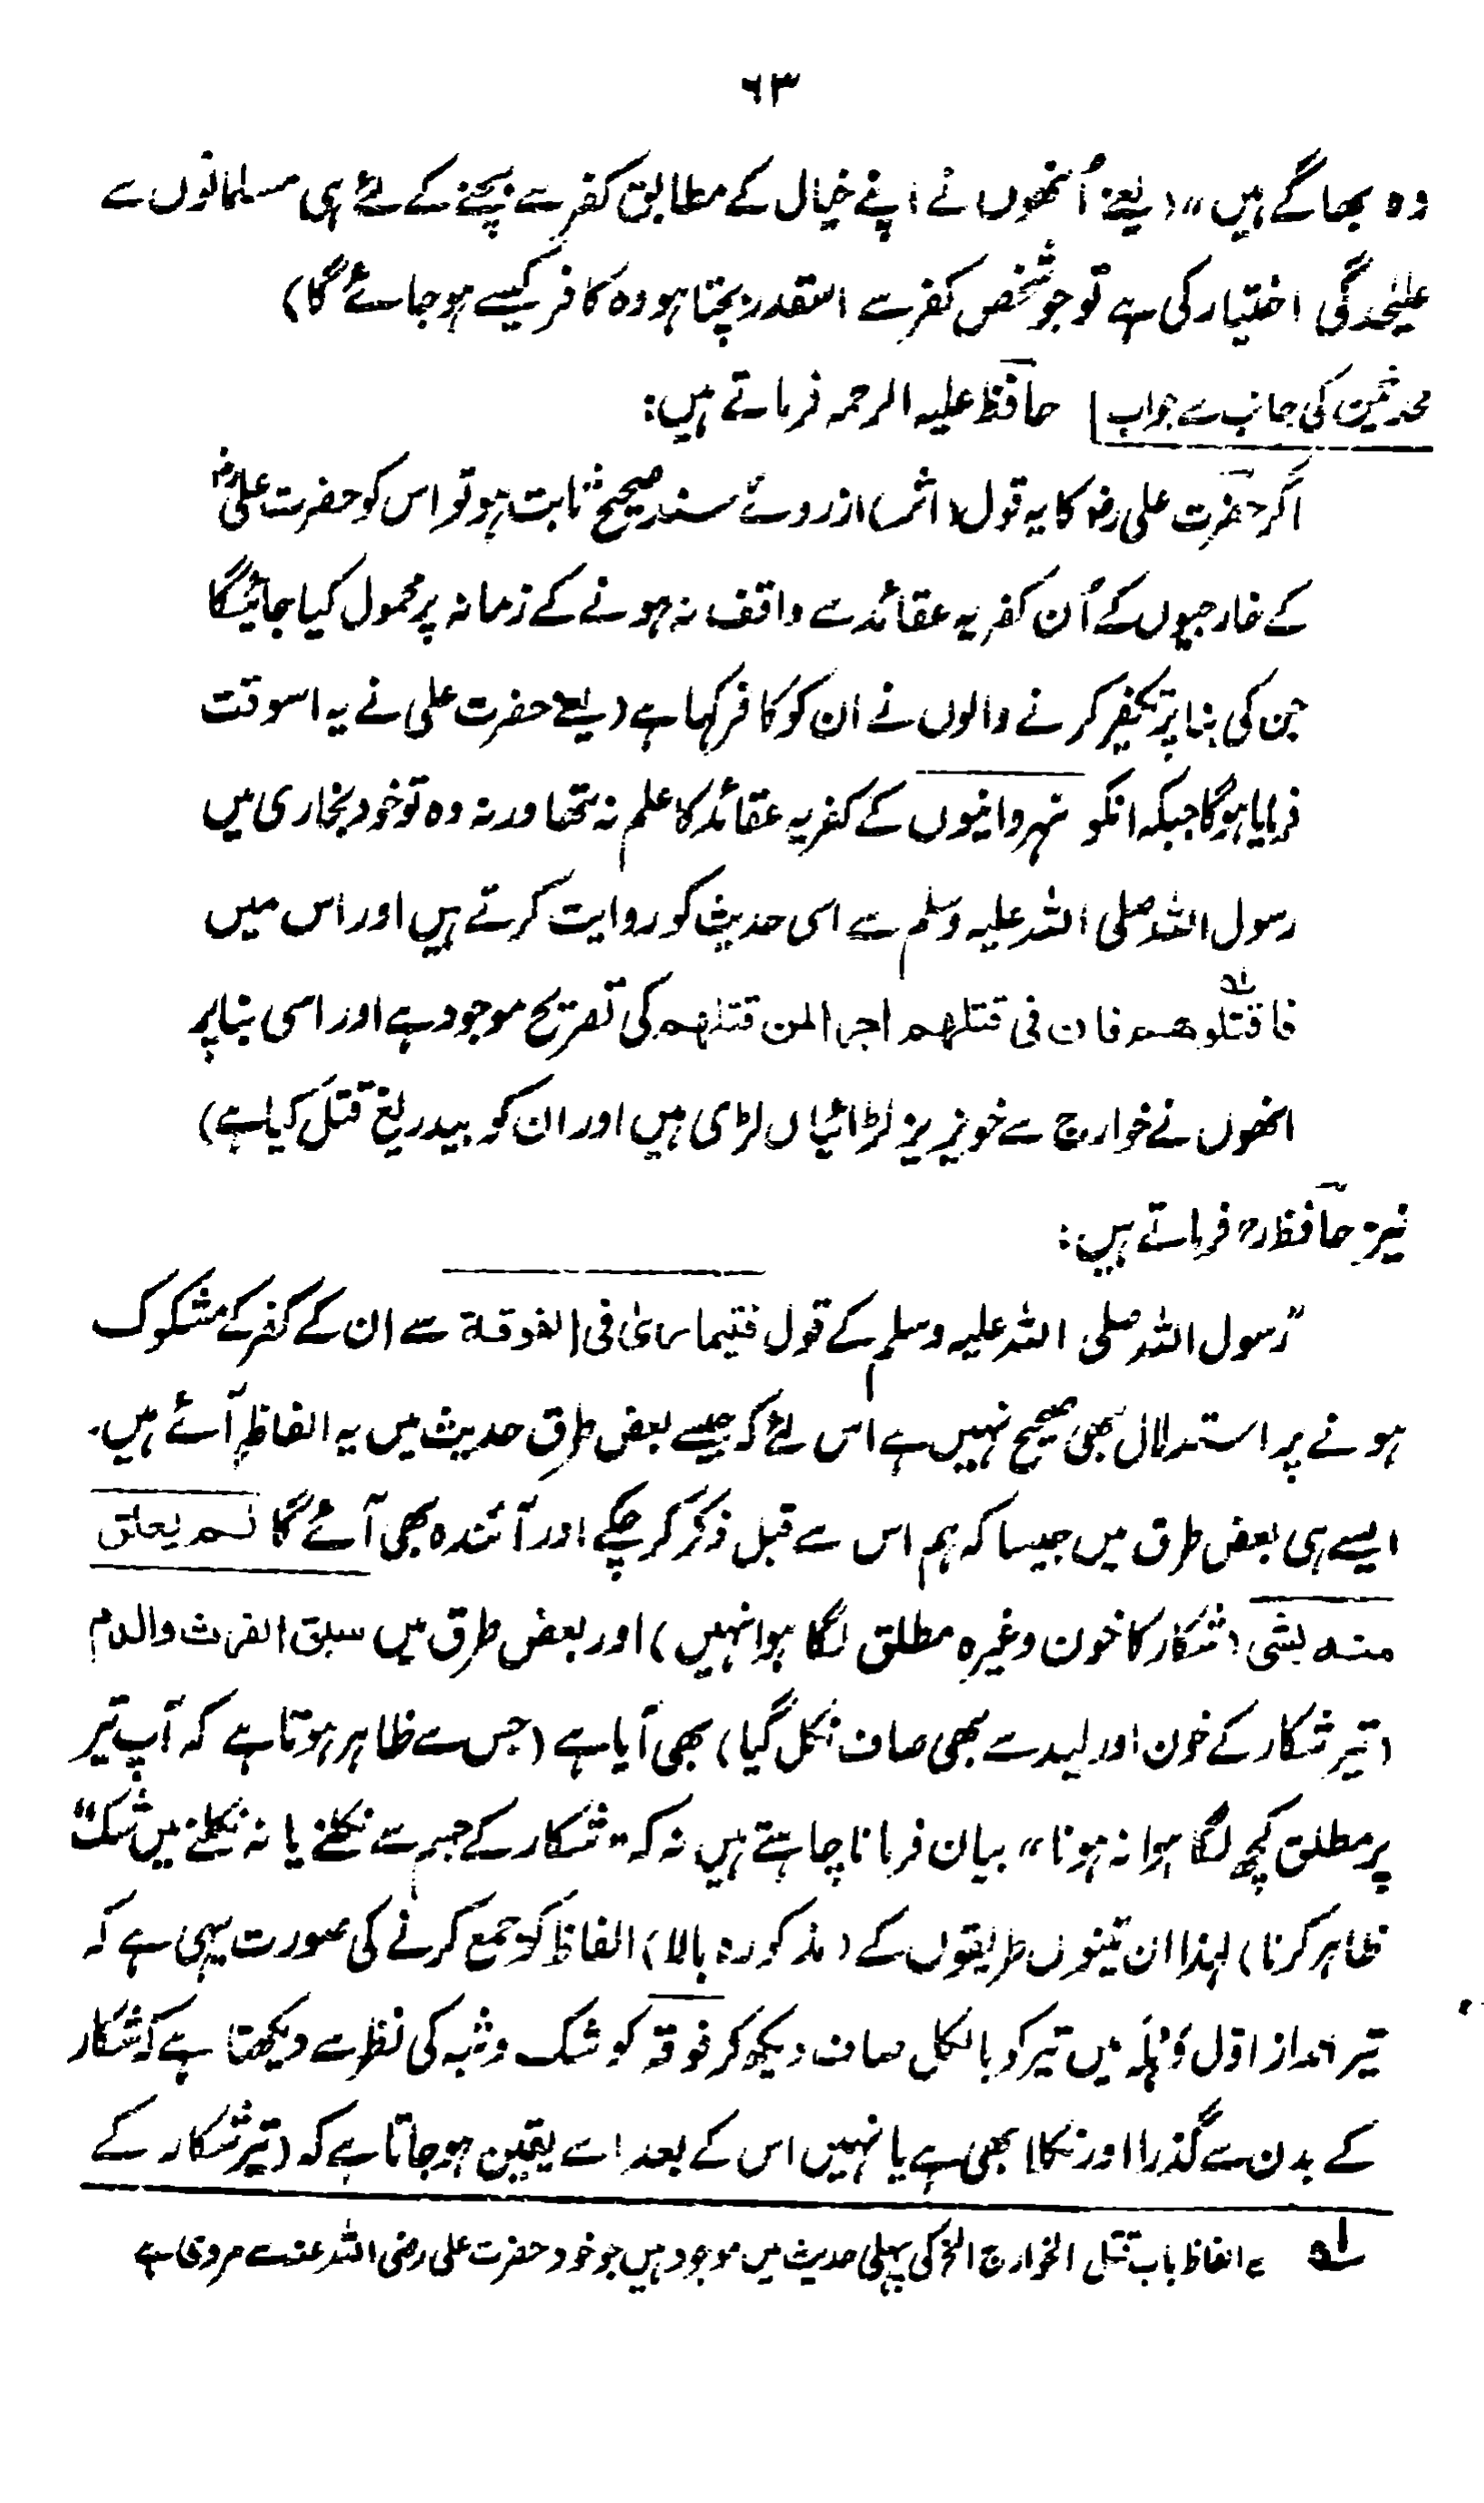 ٦٣
وہ بھاگے ہیں" (یعنے اُنھوں نے اپنے خیال کے مطابق کفر سے بچنے کے لئے ہی مسلمانوں سے
علیٰحدگی اختیار کی ہے تو جو شخص کفر سے اسقدر بچتا ہو وہ کافر کیسے ہو جائے گا)
محدثین کی جانب سے جواب] حافظ علیہ الرحمہ فرماتے ہیں:
اگر حضرت علی رضؓ کا یہ قول (اثر) از روئے سند صحیح ثابت ہو تو اس کو حضرت علیؓ
کے خارجیوں کے اُن کفریہ عقائد سے واقف نہ ہونے کے زمانہ پر محمول کیا جائیگا
جن کی بنا پر تکفیر کرنے والوں نے ان کو کافر کہا ہے (یعنے حضرت علی نے یہ اسوقت
فرمایا ہوگا جبکہ انکو نہروانیوں کے کفریہ عقائد کا علم نہ تھا ورنہ وہ تو خود بخاری میں
رسول اللہ صلی اللہ علیہ وسلم سے اسی حدیث کو روایت کرتے ہیں اور اس میں
فاقتلوھم فان فی قتلھم اجرا لمن قتلھم کی تصریح موجود ہے اور اسی بنا پر
انھوں نے خوارج سے خونریز لڑائیاں لڑی ہیں اور ان کو بیدریغ قتل کیا ہے)
نیز حافظؒ فرماتے ہیں:
"رسول اللہ صلی اللہ علیہ وسلم کے قول فیتماریٰ فی الفوقۃ سے ان کے کفر کے مشکوک
ہونے پر استدلال بھی صحیح نہیں ہے اس لئے کہ جیسے بعض طرق حدیث میں یہ الفاظ آئے ہیں۔
ایسے ہی بعض طرق میں جیسا کہ ہم اس سے قبل ذکر کر چکے اور آئندہ بھی آئے گا لم یعلق
منہ بشی (شکار کا خون وغیرہ مطلق لگا ہوا نہیں) اور بعض طرق میں سبق الفرث والدم
(تیر شکار کے خون اور لید سے بھی صاف نکل گیا) بھی آیا ہے (جس سے ظاہر ہوتا ہے کہ آپ تیر
پر مطلق کچھ لگا ہوا نہ ہونا" بیان فرمانا چاہتے ہیں نہ کہ "شکار کے جسم سے نکلنے یا نہ نکلنے میں شک"
ظاہر کرنا) لہٰذا ان تینوں طریقوں کے (مذکورہ بالا) الفاظ کو جمع کرنے کی صورت یہی ہے کہ
تیر انداز اول وہلہ میں تیر کو بالکل صاف دیکھ کر فوقہ کو شک وشبہ کی نظر سے دیکھتا ہے کہ شکار
کے بدن سے گذرا اور نکلا بھی ہے یا نہیں اس کے بعد اسے یقین ہو جاتا ہے کہ (تیر شکار کے
لہ یہ الفاظ باب قتل الخوارج الخ کی پہلی حدیث میں موجود ہیں جو خود حضرت علی رضی اللہ عنہ سے مروی ہے